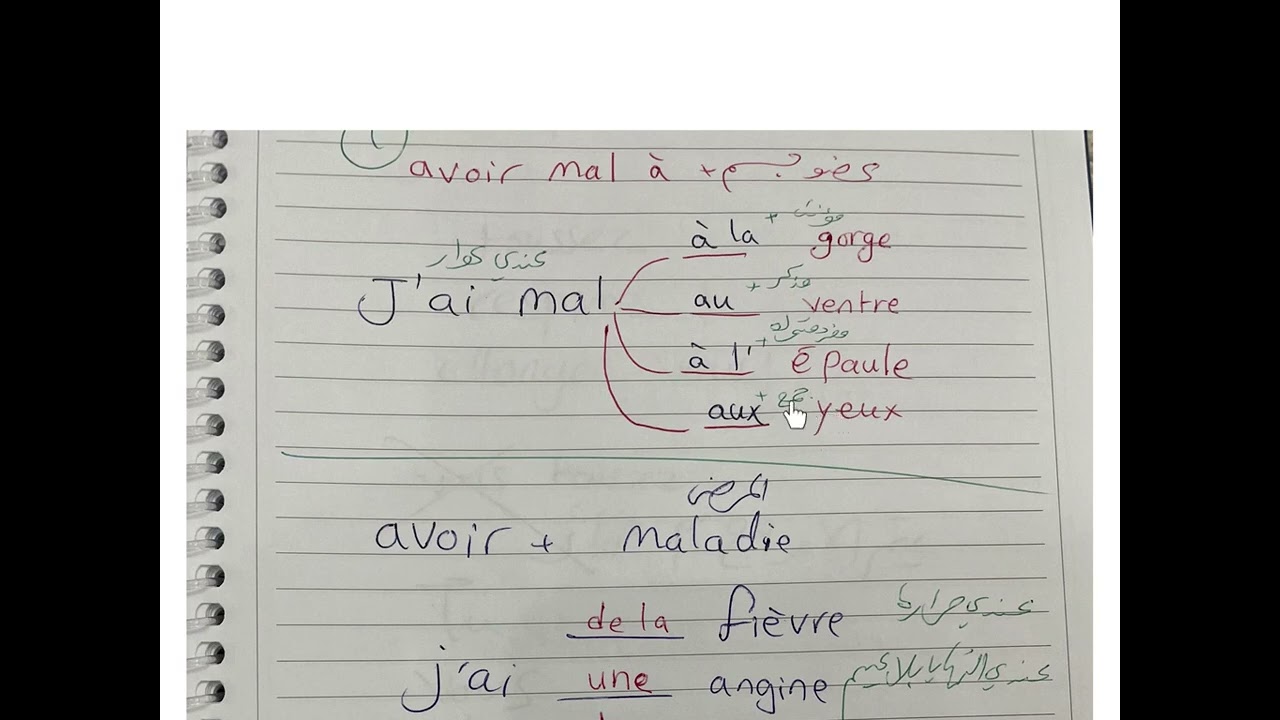 ١
avoir mal à + عضو جسم
à la + مؤنث gorge
عندي عوار
J'ai mal
au + مذكر ventre
à l' + مفرد متحركة épaule
aux + جمع yeux
المرض
avoir + maladie
de la fièvre عندي حرارة
j'ai une angine عندي التهاب بلاعيم